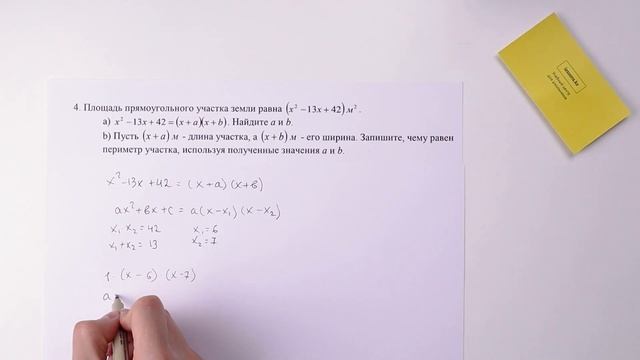 4. Площадь прямоугольного участка земли равна (x² −13x + 42) м² .
a) x² −13x + 42 = (x + a)(x + b). Найдите a и b.
b) Пусть (x + a) м - длина участка, а (x + b) м - его ширина. Запишите, чему равен
периметр участка, используя полученные значения a и b.
x² −13x + 42 = (x + a) (x + в)
ax² + вx + c = a (x − x₁) (x − x₂)
x₁ · x₂ = 42 x₁ = 6
x₁ + x₂ = 13 x₂ = 7
1 · (x − 6) · (x − 7)
a